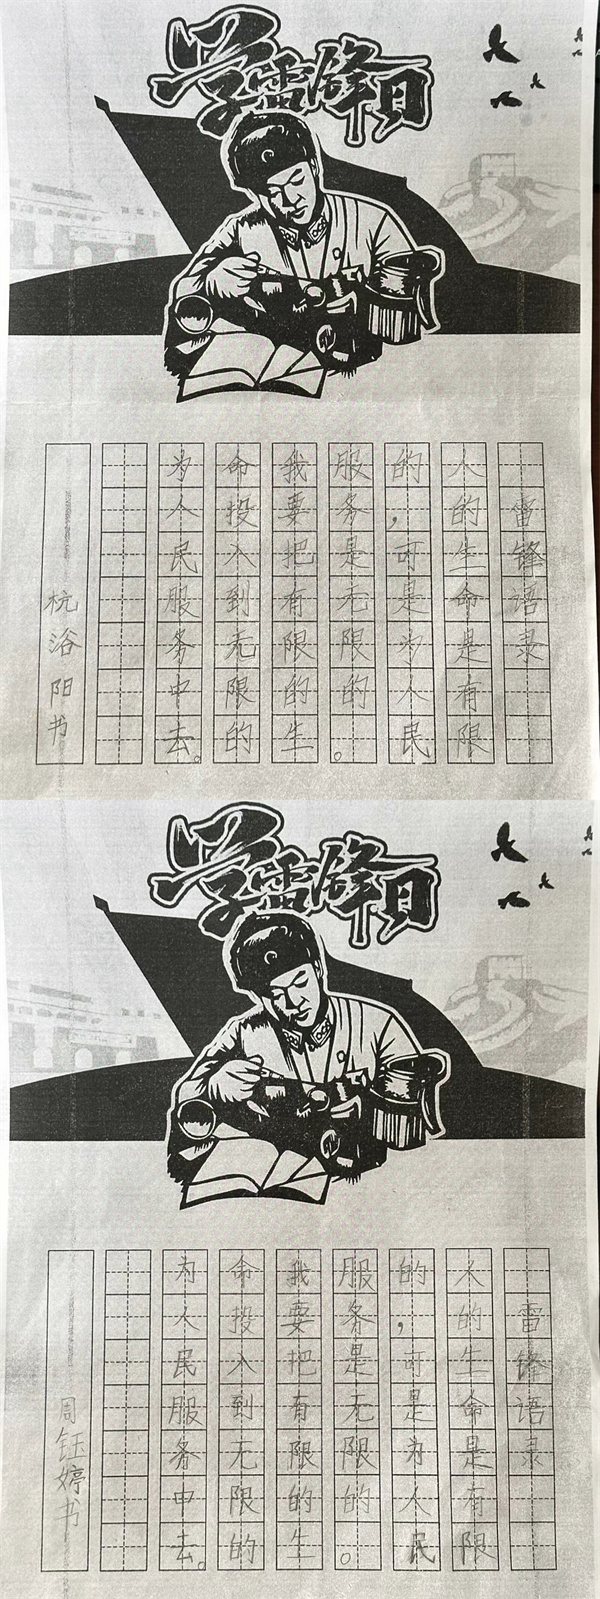 学雷锋日
雷锋语录
人的生命是有限
的，可是为人民
服务是无限的。
我要把有限的生
命投入到无限的
为人民服务中去。
杭浴阳书
学雷锋日
雷锋语录
人的生命是有限
的，可是为人民
服务是无限的。
我要把有限的生
命投入到无限的
为人民服务中去。
周钰婷书